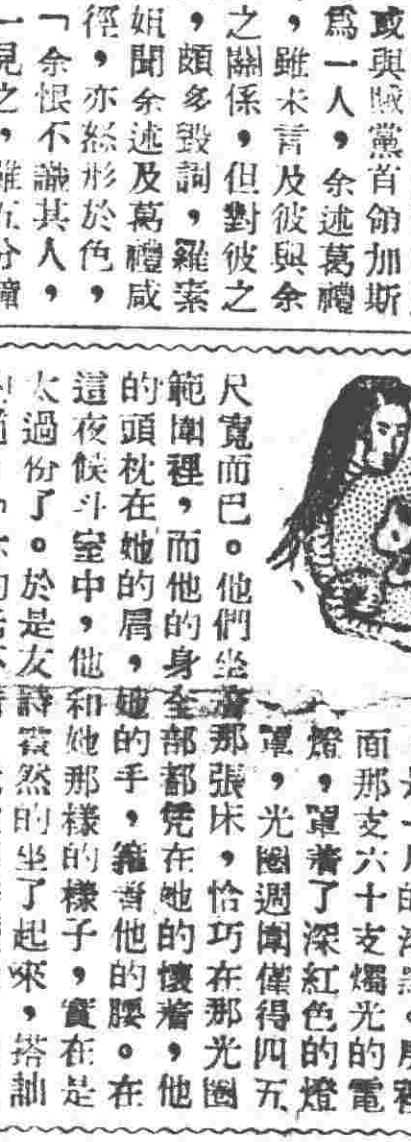 或與賊黨首領加斯
為一人，余述葛禮
，雖未言及彼與余
之關係，但對彼之
，頗多毀詞，羅素
姐聞余述及葛禮咸
徑，亦怒形於色，
「余恨不識其人，
一見之，雖五分鐘
面那支六十支燭光的電
燈，罩着了深紅色的燈
罩，光圈週圍僅得四五
尺寬而巳。他們坐着那張床，恰巧在那光圈
範圍裡，而他的身全部都凭在她的懷着，他
的頭枕在她的肩，她的手，籠着他的腰。在
這夜候斗室中，他和她那樣的樣子，實在是
太過份了。於是友詩突然的坐了起來，搭訕